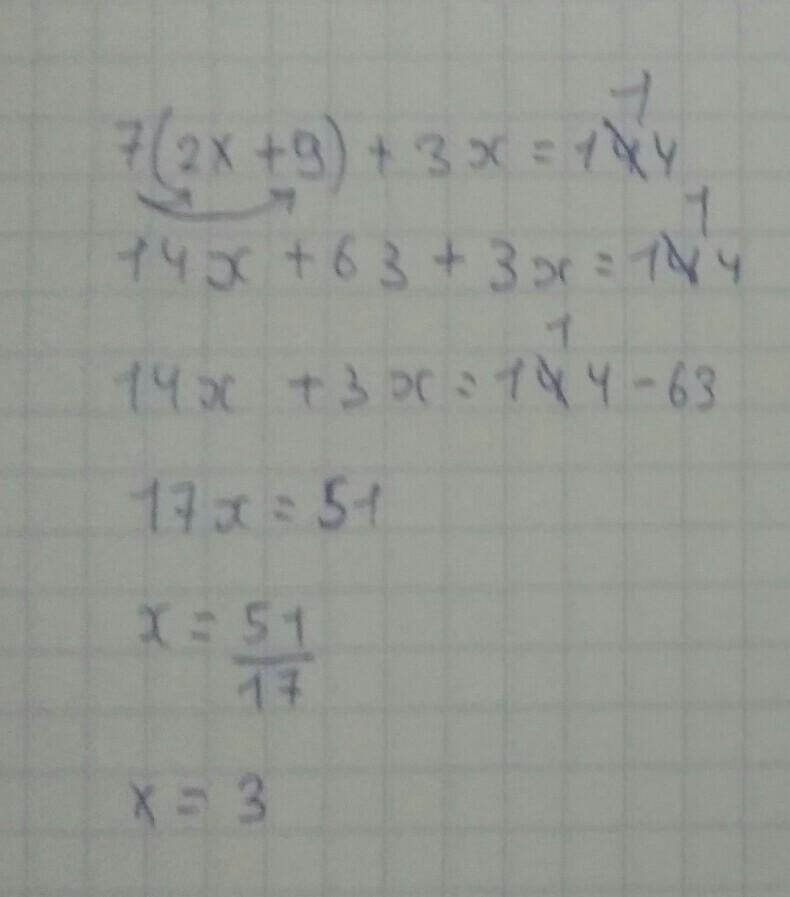 7(2x+9) + 3x = 114
14x + 63 + 3x = 114
14x + 3x = 114 - 63
17x = 51
x = 51/17
x = 3